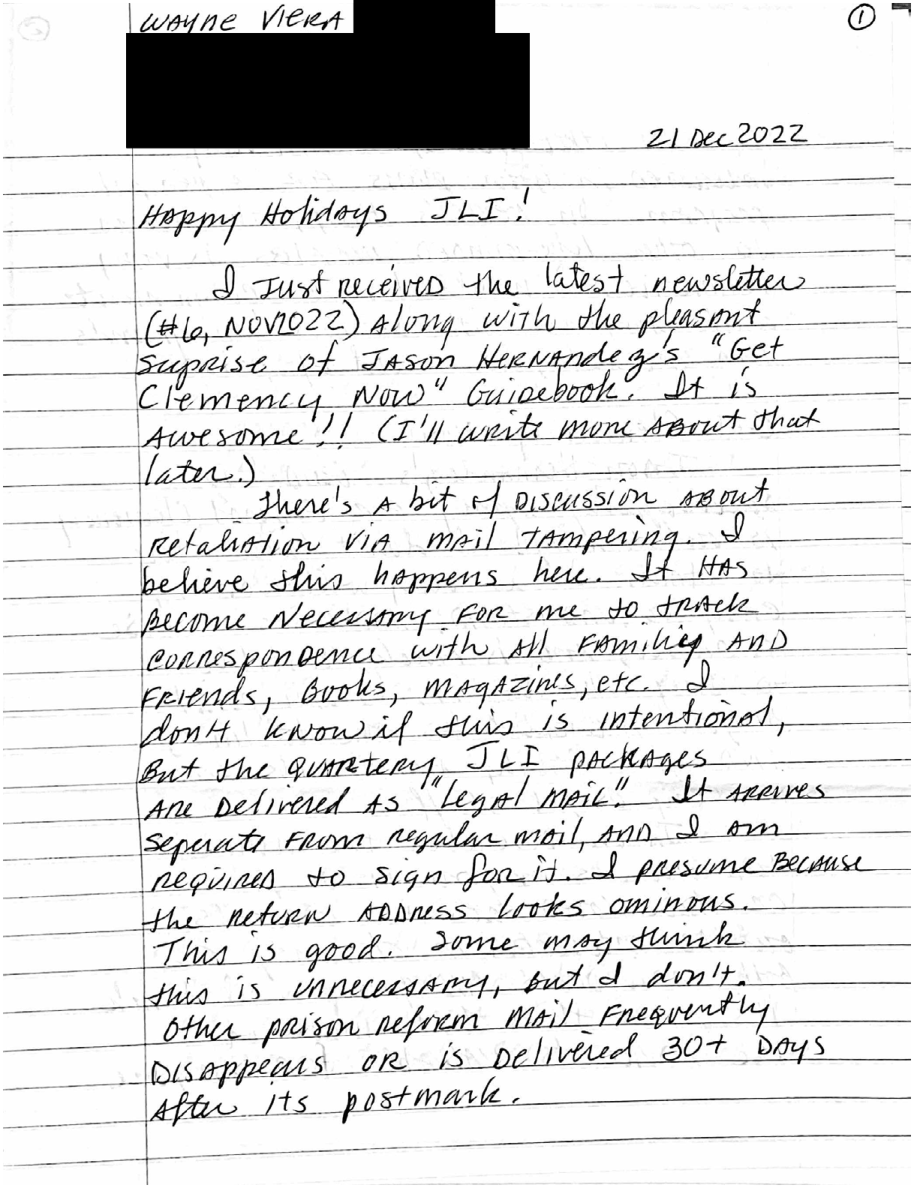 WAYNE VIERA
①
21 Dec 2022
Happy Holidays JLI!
I Just received the latest newsletter
(#6, NOV2022) Along with the pleasant
Suprise of JASON HERNANdez's "Get
Clemency Now" Guidebook. It is
Awesome!! (I'll write more About that
later.)
There's A bit of Discussion About
Retaliation VIA mail TAmpering. I
believe this happens here. It HAS
Become Necessary FOR me to track
correspondence with All Families AND
Friends, Books, MAgAzines, etc. I
don't know if this is intentional,
But the Quarterly JLI packages
Are Delivered As "Legal Mail." It Arrives
Seperate From regular mail, AND I Am
required to Sign for it. I presume Because
the return ADDress looks ominous.
This is good. Some may think
this is unnecessary, but I don't.
Other prison reform Mail Frequently
DisAppears OR is Delivered 30+ DAys
After its postmark.